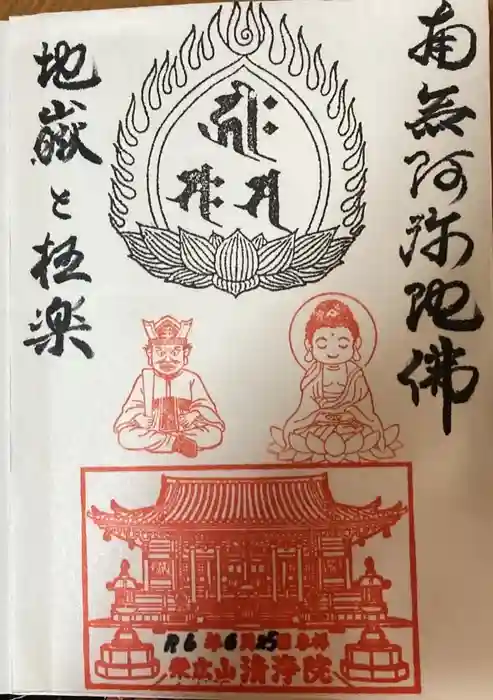 南無阿弥陀佛
ह्रीः
स सः
地獄と極楽
R6年6月25日参拝
山清浄院